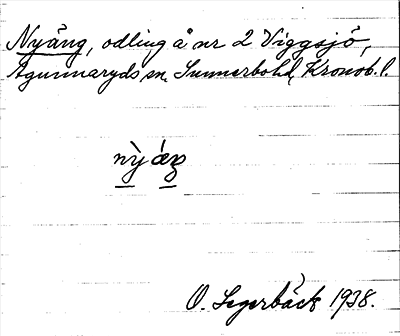 Nyäng, odling å nr 2 Viggsjö,
Agunnaryds sn. Sunnerbo hd, Kronob. l.
nỳ áŋ
O. Segerbäck 1938.